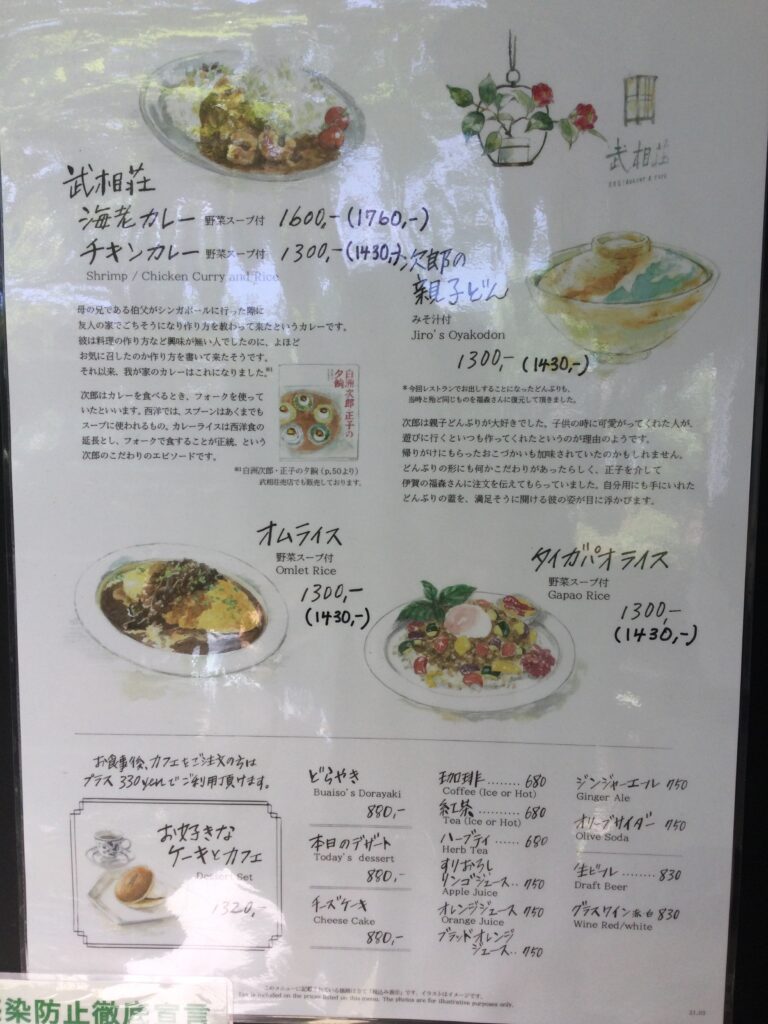 武相荘
RESTAURANT & CAFE
武相荘
海老カレー 野菜スープ付 1600,-(1760,-)
チキンカレー 野菜スープ付 1300,-(1430,-)
Shrimp / Chicken Curry and Rice
母の兄である伯父がシンガポールに行った際に
友人の家でごちそうになり作り方を教わって来たというカレーです。
彼は料理の作り方など興味が無い人でしたのに、よほど
お気に召したのか作り方を書いて来たそうです。
それ以来、我が家のカレーはこれになりました。※1
次郎はカレーを食べるとき、フォークを使って
いたといいます。西洋では、スプーンはあくまでも
スープに使われるもの。カレーライスは西洋食の
延長とし、フォークで食すことが正統、という
次郎のこだわりのエピソードです。
白洲次郎・正子の夕餉
※1 白洲次郎・正子の夕餉 (p,50より)
武相荘売店でも販売しております。
次郎の
親子どん
みそ汁付
Jiro's Oyakodon
1300,- (1430,-)
*今回レストランでお出しすることになったどんぶりも、
当時と殆ど同じものを福森さんに復元して頂きました。
次郎は親子どんぶりが大好きでした。子供の時に可愛がってくれた人が、
遊びに行くといつも作ってくれたというのが理由のようです。
帰りがけにもらったおこづかいも加味されていたのかもしれません。
どんぶりの形にも何かこだわりがあったらしく、正子を介して
伊賀の福森さんに注文を伝えてもらっていました。自分用にも手にいれた
どんぶりの蓋を、満足そうに開ける彼の姿が目に浮かびます。
オムライス
野菜スープ付
Omlet Rice
1300,-
(1430,-)
タイガパオライス
野菜スープ付
Gapao Rice
1300,-
(1430,-)
お食事後、カフェをご注文の方は
プラス330yenでご利用頂けます。
お好きな
ケーキとカフェ
Dessert Set
1320,-
どらやき
Buaiso's Dorayaki
880,-
本日のデザート
Today's dessert
880,-
チーズケーキ
Cheese Cake
880,-
珈琲 ......... 680
Coffee (Ice or Hot)
紅茶 ......... 680
Tea (Ice or Hot)
ハーブティ ...... 680
Herb Tea
すりおろし
リンゴジュース.. 750
Apple Juice
オレンジジュース 750
Orange Juice
ブラッドオレンジ
ジュース... 750
ジンジャーエール 750
Ginger Ale
オリーブサイダー 750
Olive Soda
生ビール ........ 830
Draft Beer
グラスワイン 赤白 830
Wine Red/white
このメニューに記載されている価格は全て「税込み表示」です。イラストはイメージです。
Tax is included on the prices listed on this menu. The photos are for illustrative purposes only.
21.03
染防止徹底宣言